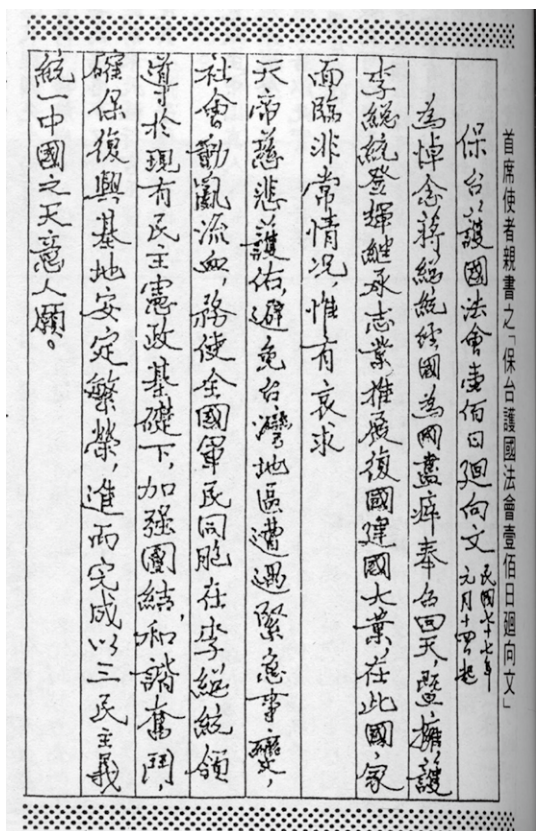 首席使者親書之「保台護國法會壹佰日廻向文」
保台護國法會壹佰日廻向文 民國七十七年元月十四日起
為悼念蔣總統經國為國盡瘁奉召回天，暨擁護
李總統登輝繼承志業推展復國建國大業，在此國家
面臨非常情況，惟有哀求
天帝慈悲護佑，避免台灣地區遭遇緊急事變，
社會動亂流血，務使全國軍民同胞在李總統領
導於現有民主憲政基礎下，加强團結，和諧奮鬥，
確保復興基地安定繁榮，進而完成以三民主義
統一中國之天意人願。